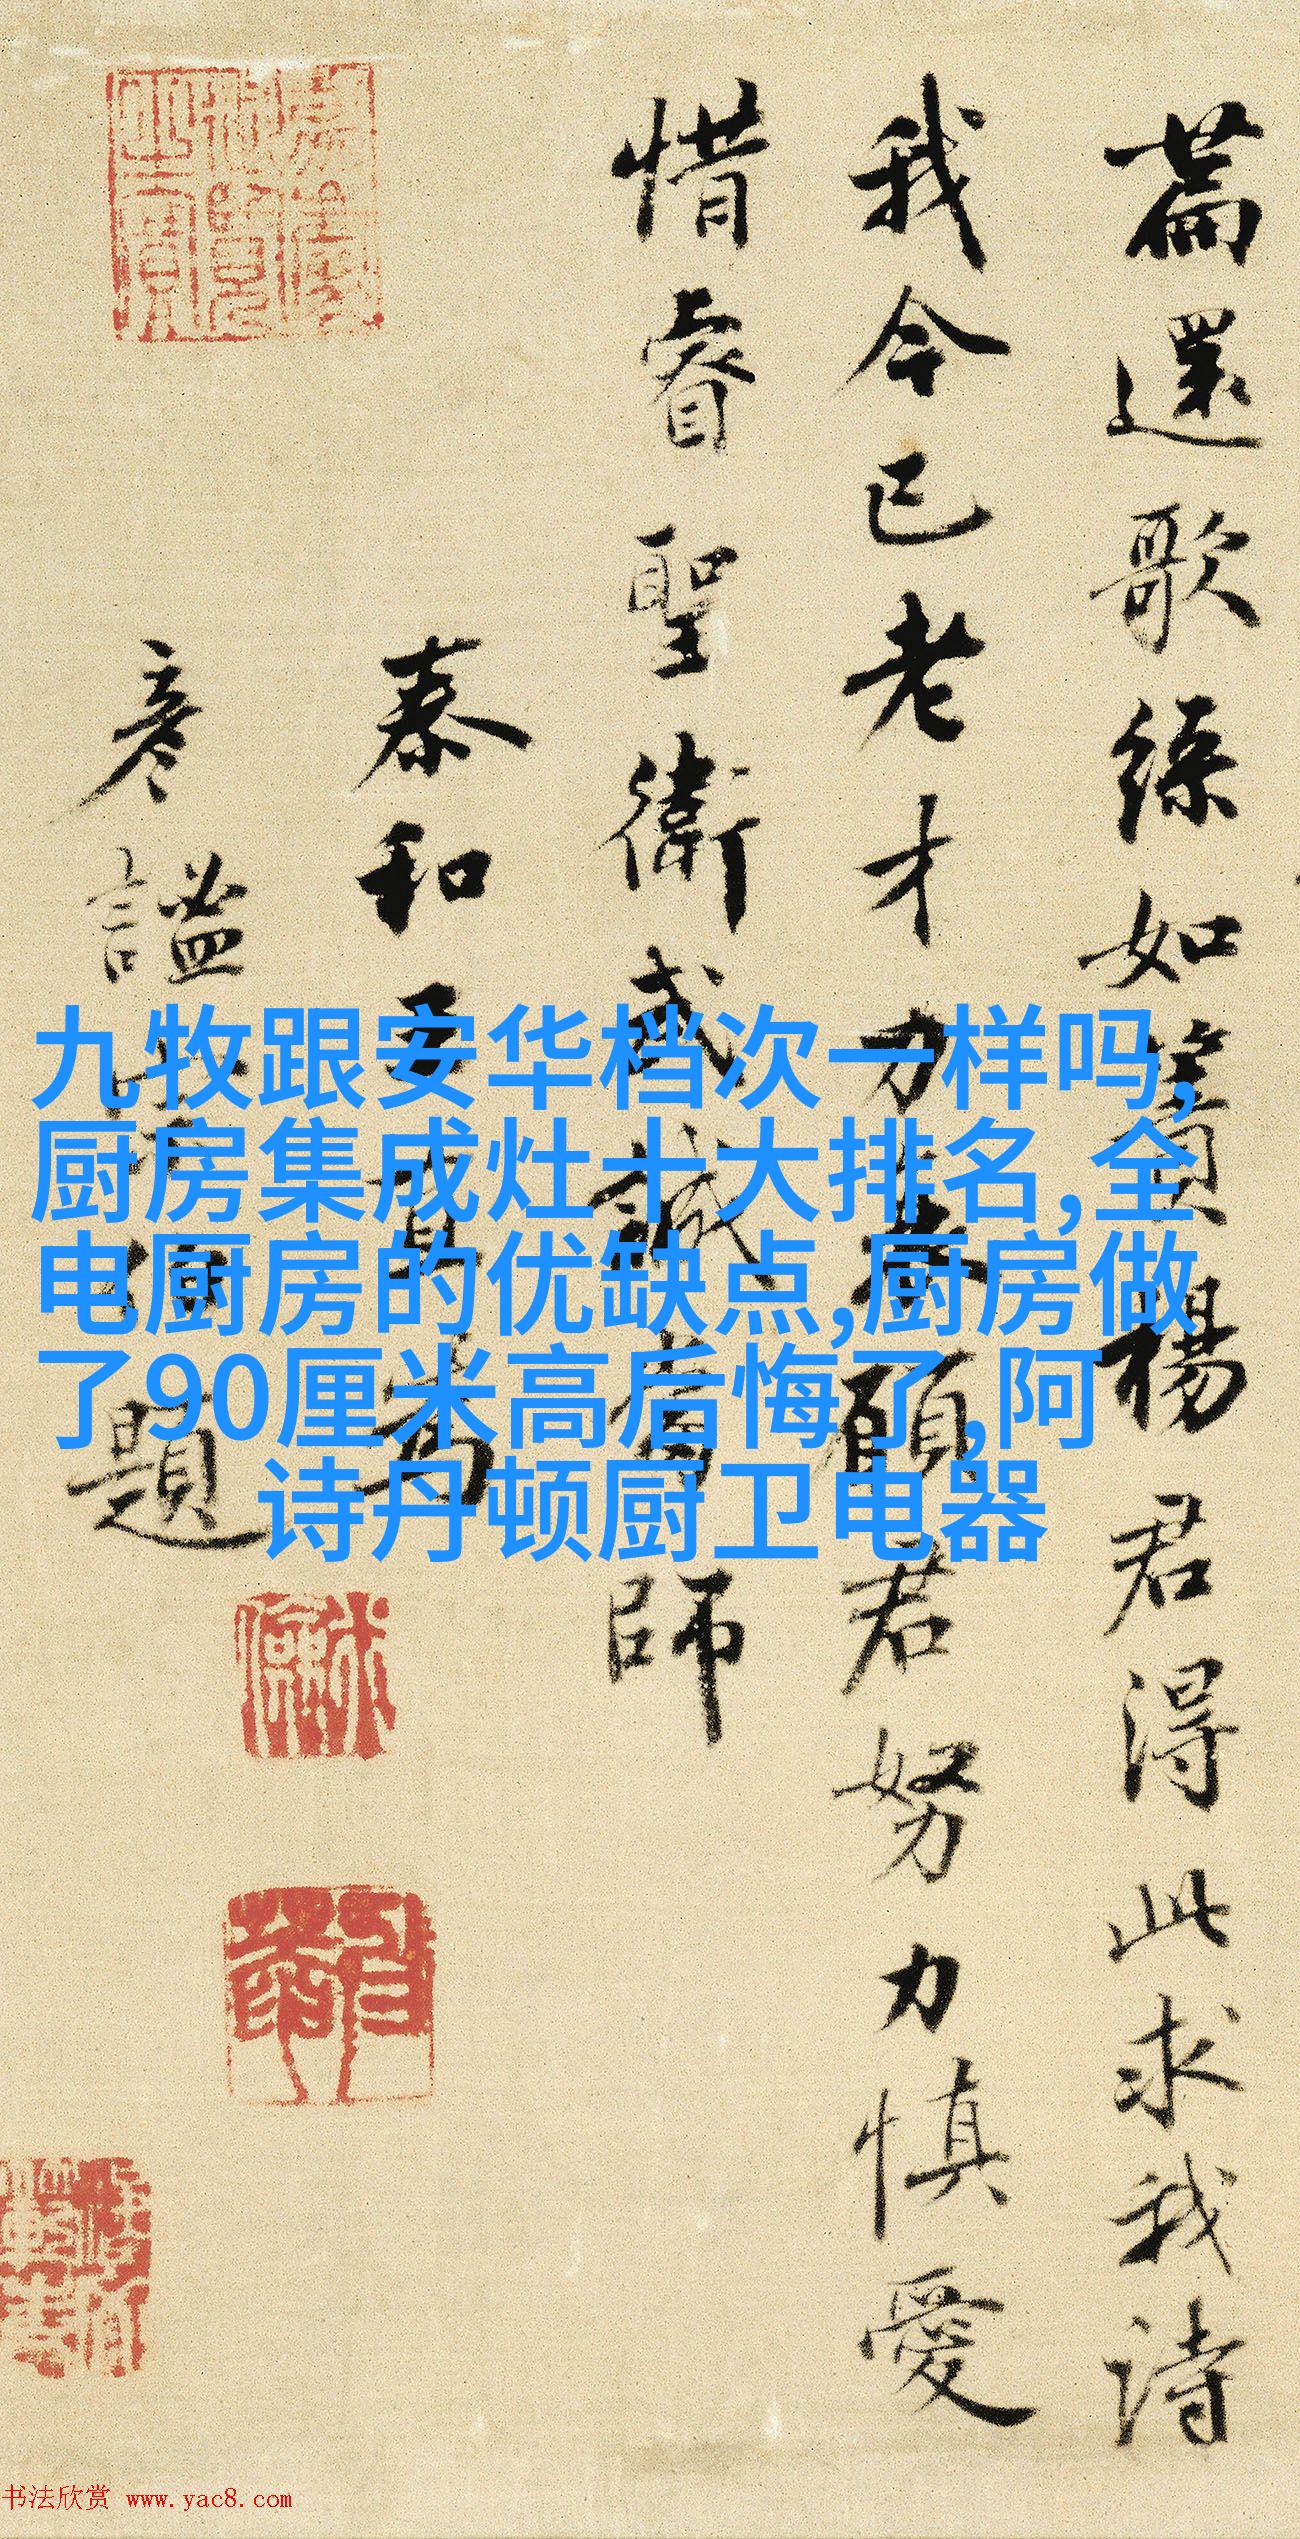 篇還歌綠如簀楊君得此求我詩
我今已老才力衰願君努力慎愛
惜睿聖衛武誠吾師
泰和王直為
彥謐題
九牧跟安华档次一样吗,
厨房集成灶十大排名,全
电厨房的优缺点,厨房做
了90厘米高后悔了,阿
诗丹顿厨卫电器
书法欣赏 www.yac8.com